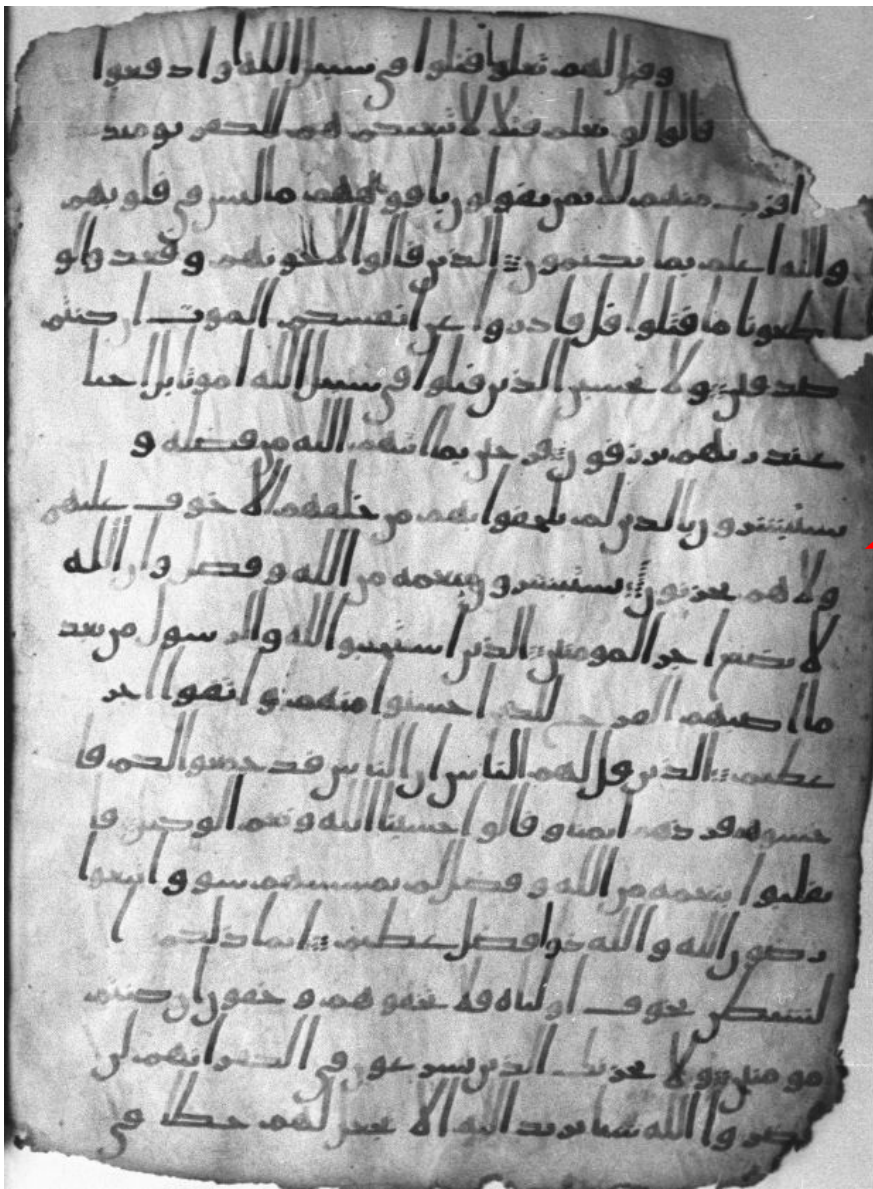 وقيل لهم تعلوا قتلوا في سبيل الله او ادفعوا
قالوا لو نعلم قتلا لاتبعنكم هم للكفر يومئذ
اقرب منهم للايمن يقولون بافوههم ما ليس في قلوبهم
والله اعلم بما يكتمون الذين قالوا لاخونهم وقعدوا لو
اطعونا ما قتلوا قل فادروا عن انفسكم الموت ان كنتم
صدقين ولا تحسبن الذين قتلوا في سبيل الله اموتا بل احيا
عند ربهم يرزقون فرحين بما اتهم الله من فضله و
يستبشرون بالذين لم يلحقوا بهم من خلفهم الا خوف عليهم
ولا هم يحزنون يستبشرون بنعمه من الله وفضل وان الله
لا يضيع اجر المومنين الذين استجبوا لله والرسول من بعد
ما اصبهم القرح للذين احسنوا منهم واتقوا اجر
عظيم الذين قل لهم الناس ان الناس قد جمعوا لكم فا
خشوهم فزدهم ايمنا وقالوا حسبنا الله ونعم الوكيل فا
نقلبوا بنعمه من الله وفضل لم يمسسهم سو واتبعوا
رضون الله والله ذوا فضل عظيم انما ذلكم ا
لشيطن يخوف اولياه فلا تخفوهم وخفون ان كنتم
مومنين ولا يحزنك الذين يسرعون في الكفر انهم لن
يضروا الله شيا يريد الله الا يجعل لهم حظا في